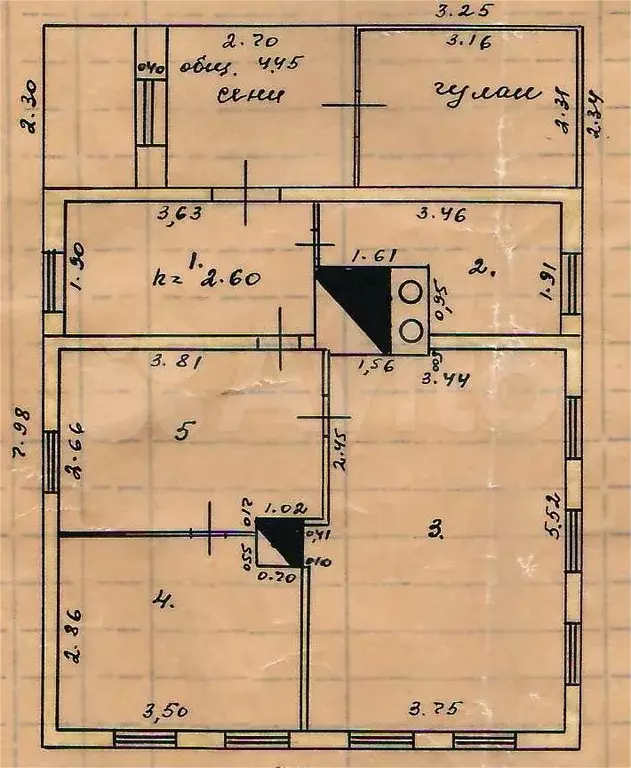 3.25
2.70
3.16
0.40
общ. 4.45
сени
чулан
2.30
2.31
2.34
3,63
3.46
1.90
1.
h = 2.60
1.61
2.
1.91
0,95
1,56
0.05
3.81
3.44
7.98
2.66
5
2.45
5.52
0.12
1.02
0,41
3.
0.55
0.70
0.10
4.
2.86
3,50
3.75